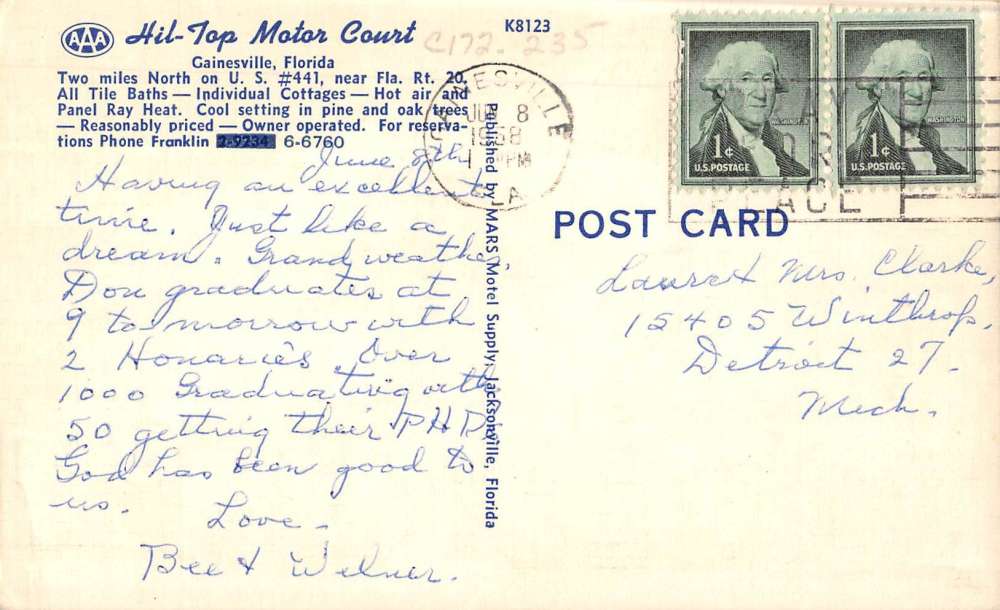 AAA Hil-Top Motor Court
Gainesville, Florida
Two miles North on U. S. #441, near Fla. Rt. 20,
All Tile Baths — Individual Cottages — Hot air and
Panel Ray Heat. Cool setting in pine and oak trees
— Reasonably priced — Owner operated. For reserva-
tions Phone Franklin 2-9234 6-6760
K8123
C172.235
June 8th
Having an excellent
time. Just like a
dream. Grand weather,
Don graduates at
9 to-morrow with
2 Honarie's. Over
1000 Graduating with
50 getting their PHD
God has been good to
us. Love -
Bee & Welner.
Published by MARS Motel Supply, Jacksonville, Florida
GAINESVILLE
JUN 8
1958
PM
FLA
PRAY
FOR
PEACE
WASHINGTON
1¢
U.S. POSTAGE
WASHINGTON
1¢
U.S. POSTAGE
POST CARD
& Mrs. Clarke,
15405 Winthrop,
Detroit 27.
Mich.